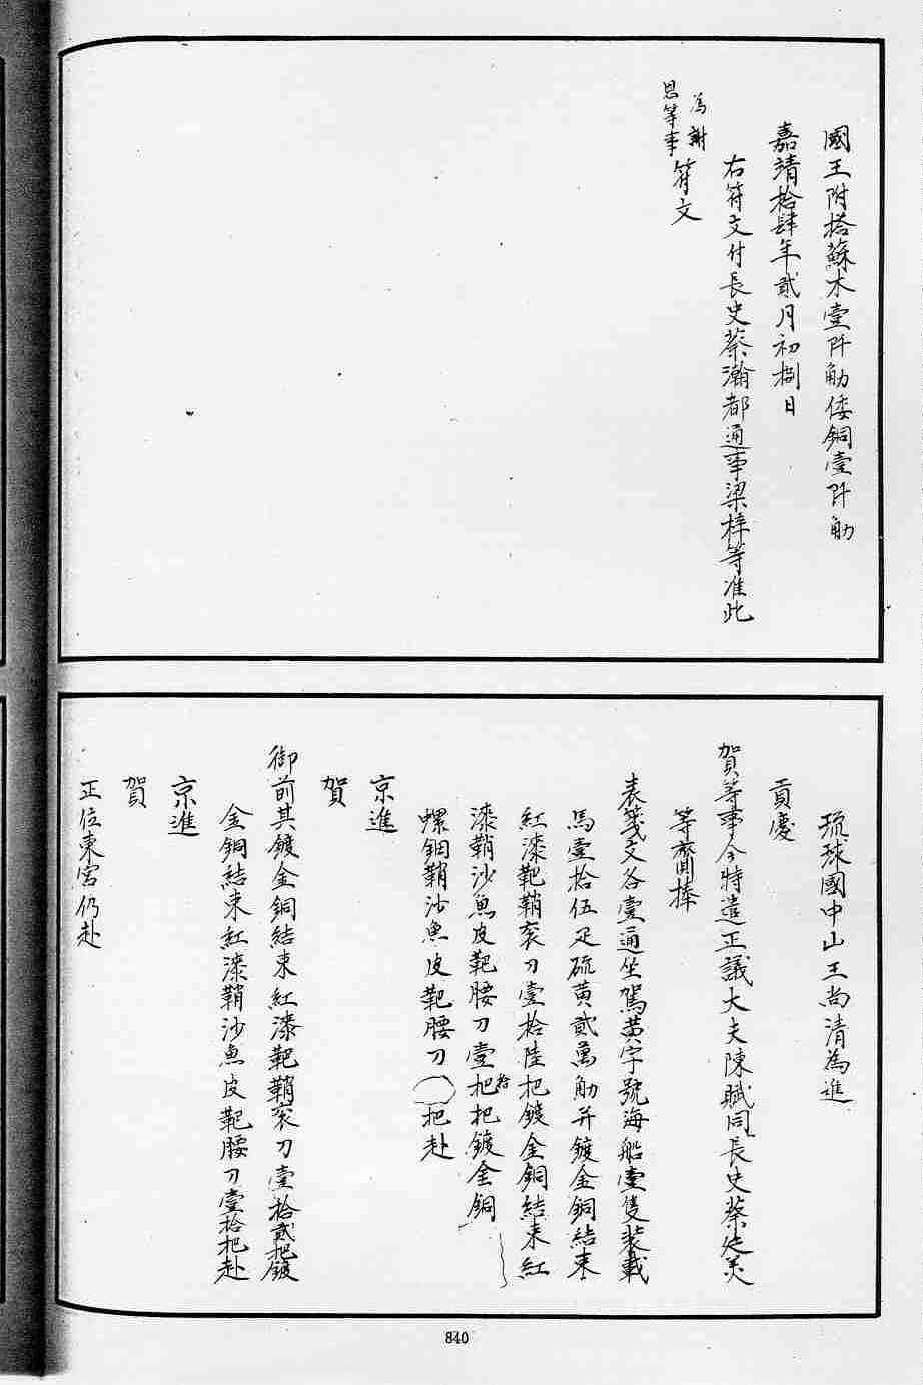 國王附搭蘇木壹阡觔倭銅壹阡觔
嘉靖拾肆年貳月初捌日
右符文付長史蔡瀚都通事梁梓等准此
為謝
恩等事符文
琉球國中山王尚清為進
貢慶
賀等事今特遣正議大夫陳賦同長史蔡廷美
等齎捧
表箋文各壹通坐駕黃字號海船壹隻裝載
馬壹拾伍疋硫黃貳萬觔并鍍金銅結束
紅漆靶鞘袞刀壹拾陸把鍍金銅結束紅
漆鞘沙魚皮靶腰刀壹拾把把鍍金銅
螺鈿鞘沙魚皮靶腰刀〇把赴
京進
賀
御前其鍍金銅結束紅漆靶鞘袞刀壹拾貳把鍍
金銅結束紅漆鞘沙魚皮靶腰刀壹拾把赴
京進
賀
正位東宮仍赴
840